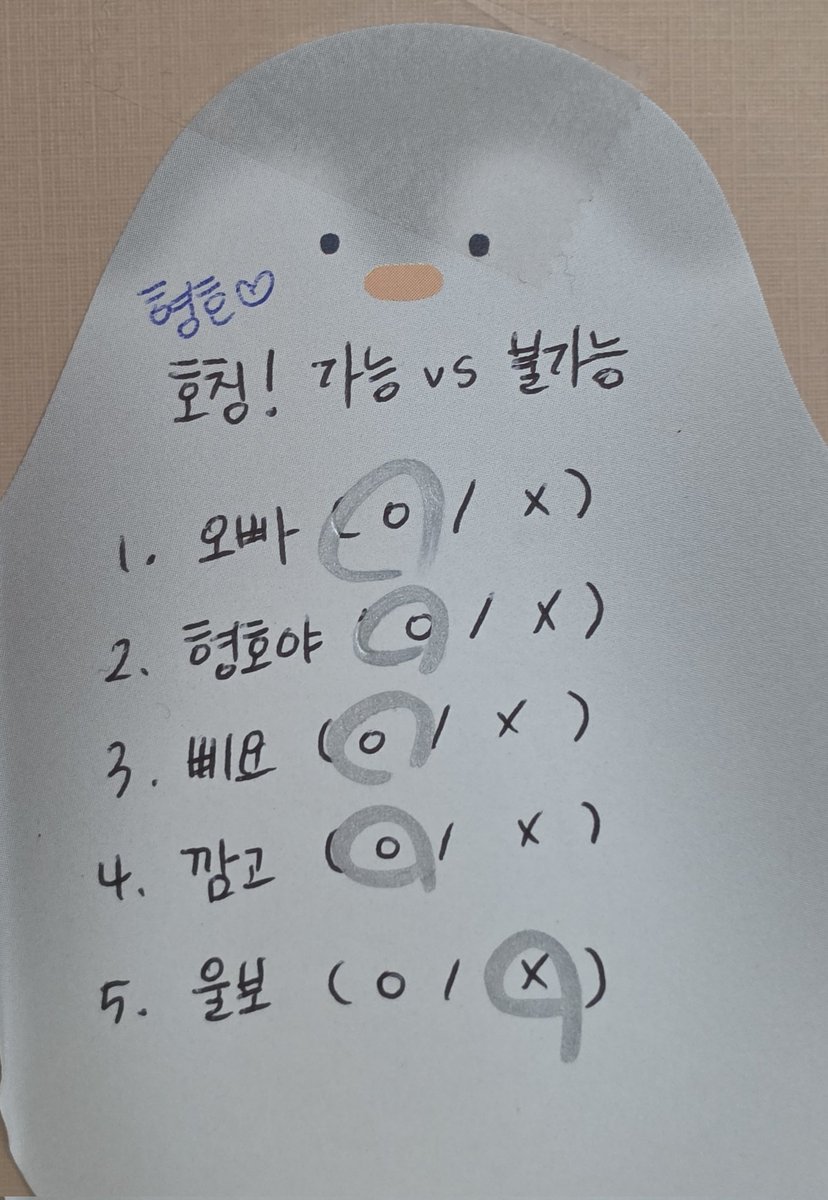 형호♡
호칭! 가능 vs 불가능
1. 오빠 (o / x)
2. 형호야 (o / x)
3. 삐요 (o / x)
4. 깜고 (o / x)
5. 울보 (o / x)